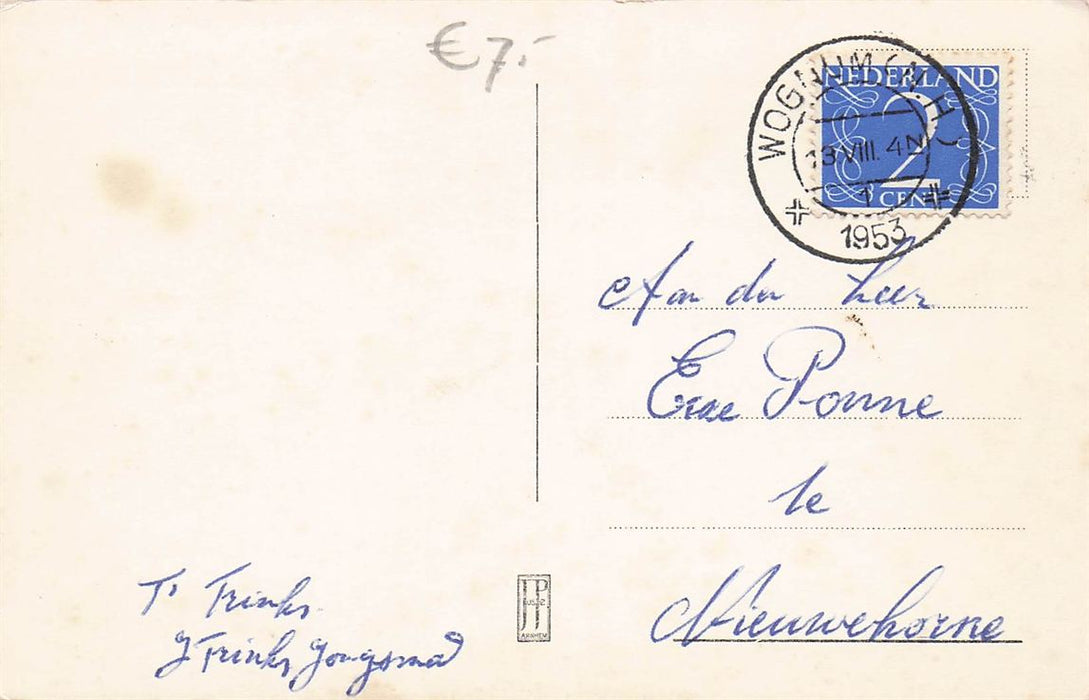 € 7.-
NEDERLAND
2
CENT
WOGNUM (N.H.)
13 VIII. 4N
1
1953
Aan den Heer
Ease Ponne
te
Nieuwehorne
T. Frinks
J Frinks Jongsma
JP
ARNHEM